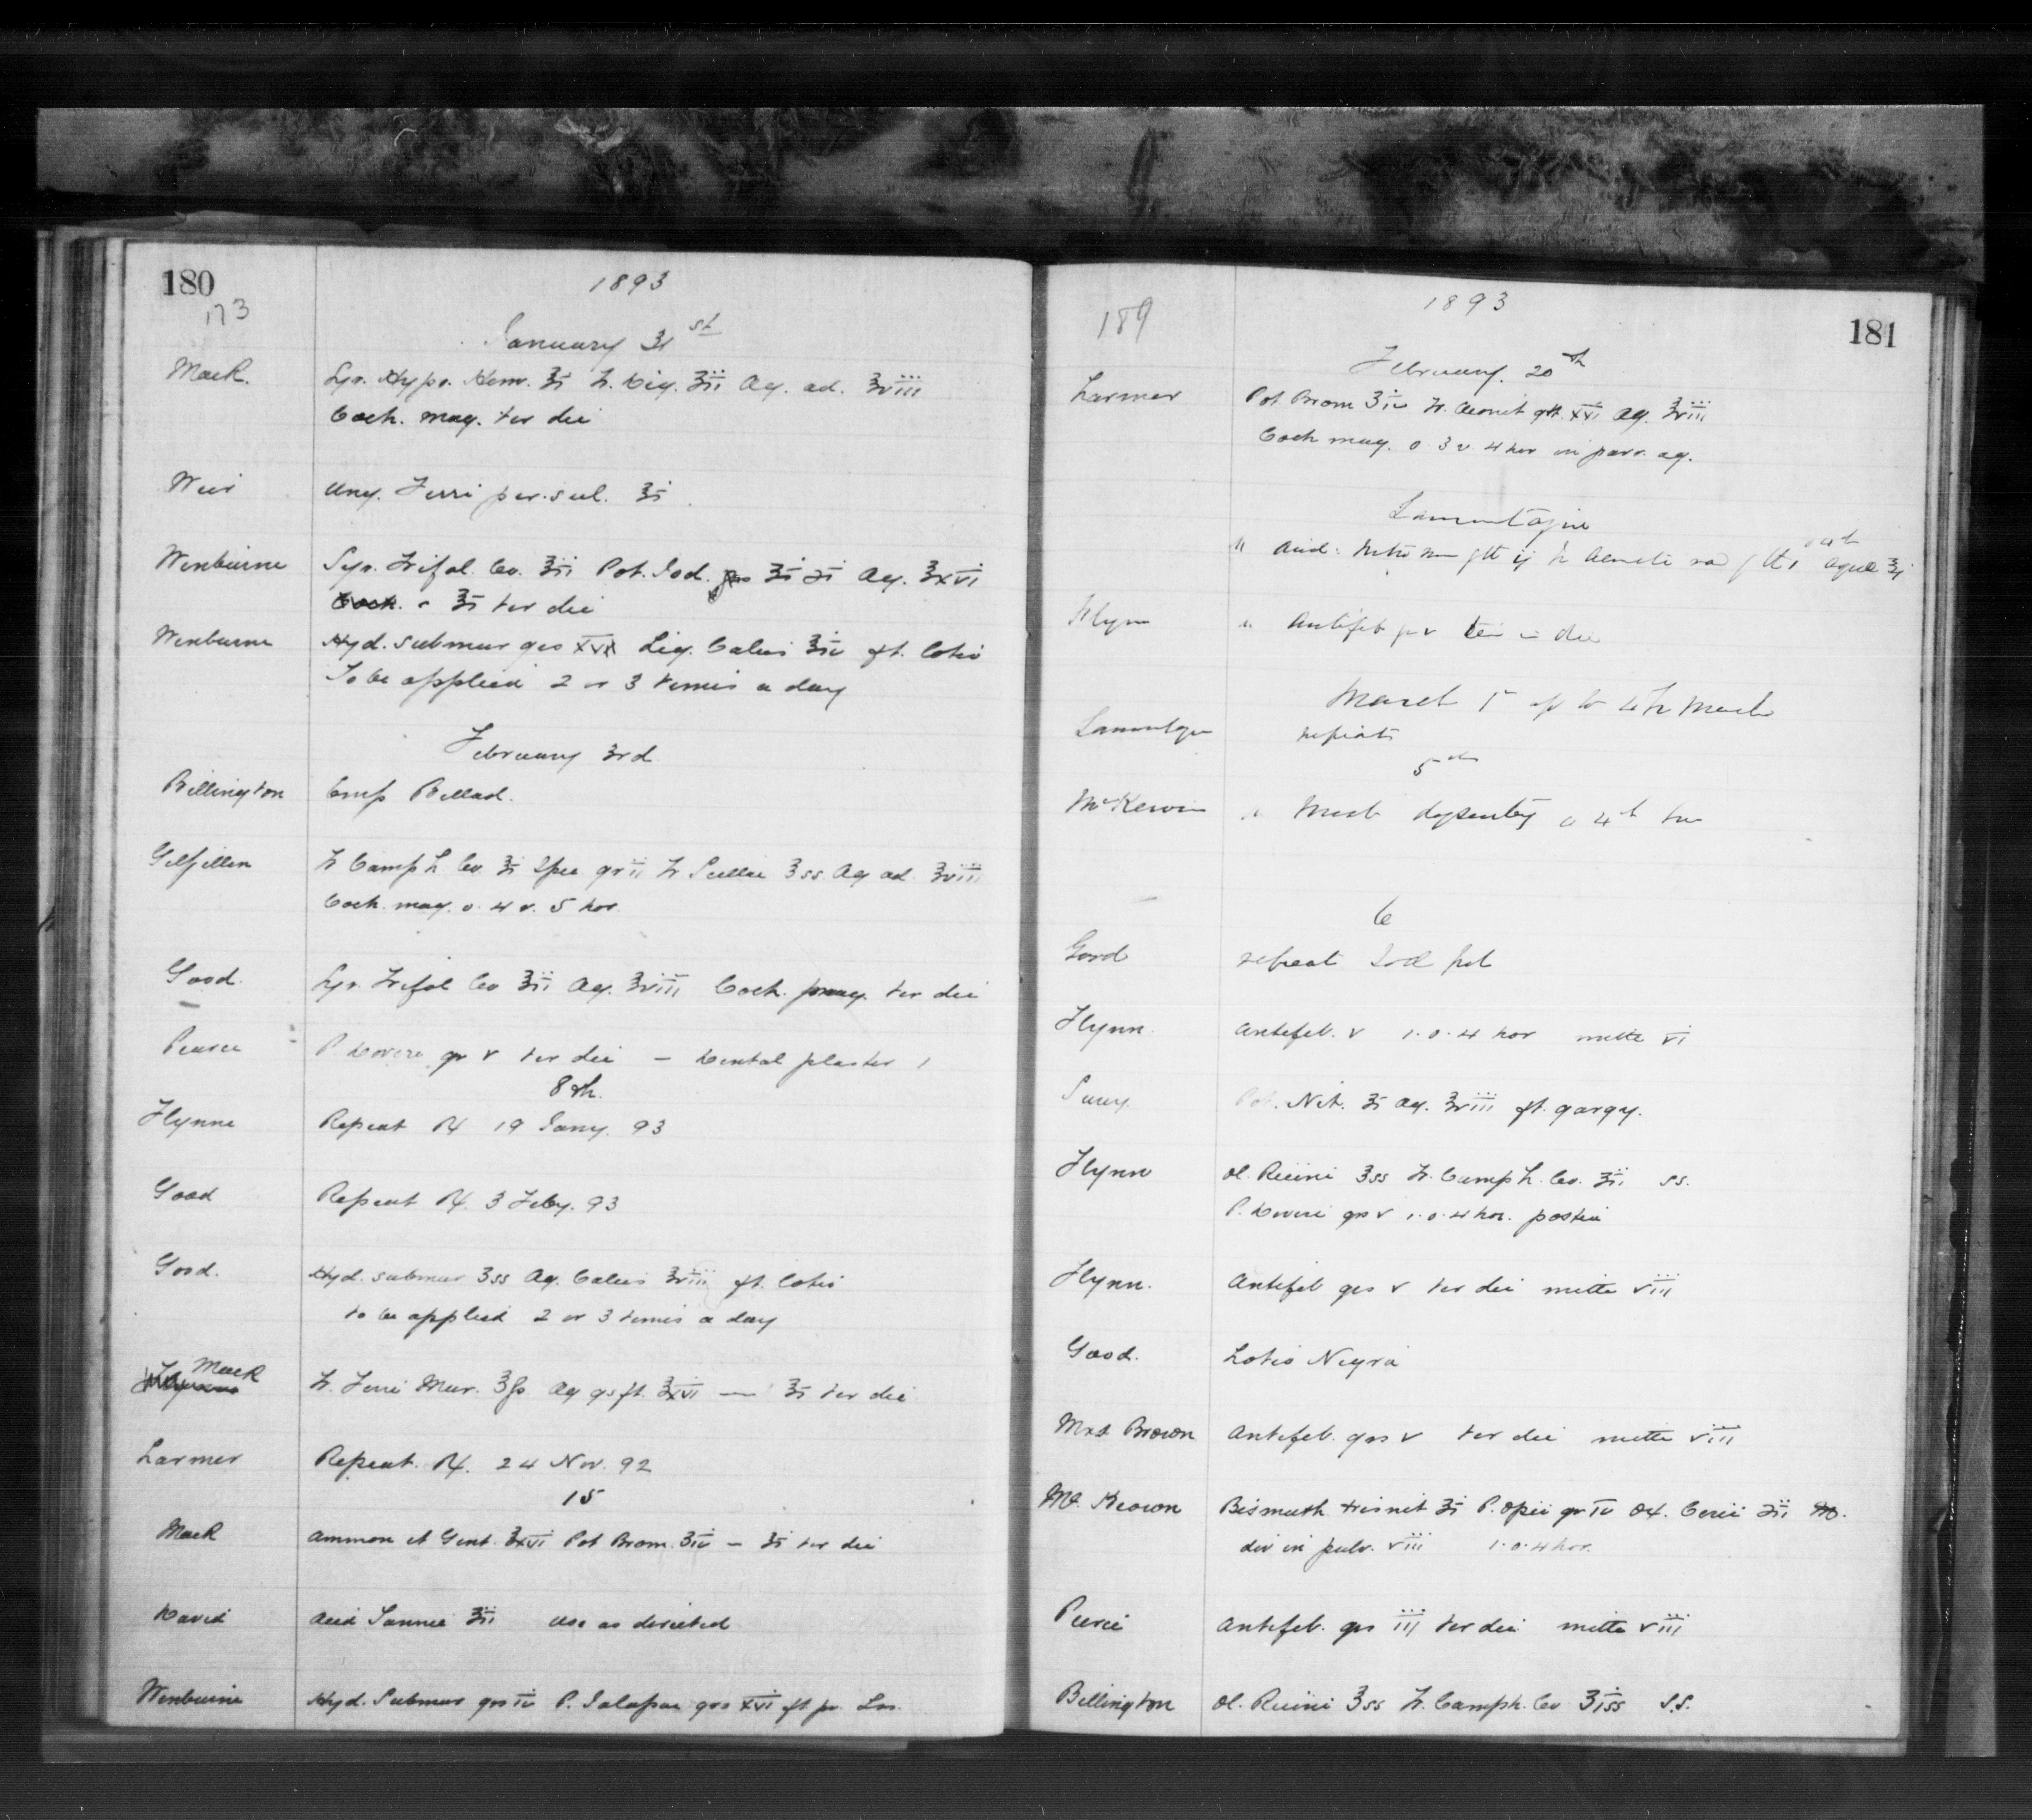 180
173
1893
January 31st
Mack. Syr. Hypo. Hem. ℥i Tr. Dig. ʒii Aq. ad. ℥viii
Coch. mag. ter die
Weir Ung. Ferri per. sul. ℥i
Wenburne Syr. Trifol. Co. ℥ii Pot. Iod. ʒi ℈i Aq. ℥xvi
ʒi ter die
Wenburne Hyd. submur grs xvi Liq. Calcis ℥iv ft. Lotio
To be applied 2 or 3 times a day
February 3rd
Billington Emp Bellad.
Gilfillen Tr Camph Co. ℥i Ipec gr ii Tr Scillae ℥ss Aq ad. ℥viii
Coch. mag. o. 4 v. 5 hor.
Good. Syr. Trifol Co ℥ii Aq. ℥viii Coch. mag. ter die
Pearce P. Doveri gr v ter die — Dental plaster 1
8th.
Flynne Repeat Rx 19 Jany. 93
Good Repeat Rx. 3 Feby. 93
Good. Hyd. submur ʒss Aq. Calcis ℥viii ft. Lotio
to be applied 2 or 3 times a day
Mack Tr. Ferri Mur. ℥ß Aq qs ft. ℥xvi — ℥i ter die
Larmer Repeat Rx. 24 Nov. 92
15
Mack Ammon et Gent. ℥xvi Pot Brom. ʒiv — ℥i ter die
David Acid Tannic ʒii Use as directed
Wenburne Hyd. Submur grs iv P. Jalapae grs xvi ft pv.
189
1893
181
February. 20th
Larmer Pot Brom ʒiv Tr. Aconit gtt. xvi Aq. ℥viii
Coch mag. o 3 v. 4 hor in parv. aq.
Lamontagne
" Acid: gtt ij Tr Aconiti aqua ℥j
Flynn " Antifeb gr v ter in die
March 1 up to 4th March
Lamontagne repeat
5th
McKewin " Mist dysentery o 4th hor
6
Good repeat Iod Pot
Flynn. Antifeb. v 1. o. 4 hor mitte vi
Pot. Nit. ʒi Aq. ℥viii ft. garg.
Flynn Ol. Ricini ℥ss Tr. Camph. Co. ʒii SS.
P. Doveri grs v 1. o. 4 hor. postea
Flynn. Antifeb grs v ter die mitte viii
Good. Lotio Nigra
Mrs Brown Antifeb. grs v ter die mitte viii
Mc Keown Bismuth trisnit ʒi P. Opii gr iv Ox. Cerii ℈ii M.
div in pulv. viii 1. o. 4 hor.
Pierce Antifeb. grs iii ter die mitte viii
Billington Ol. Ricini ℥ss Tr. Camph. Co ʒiss S.S.